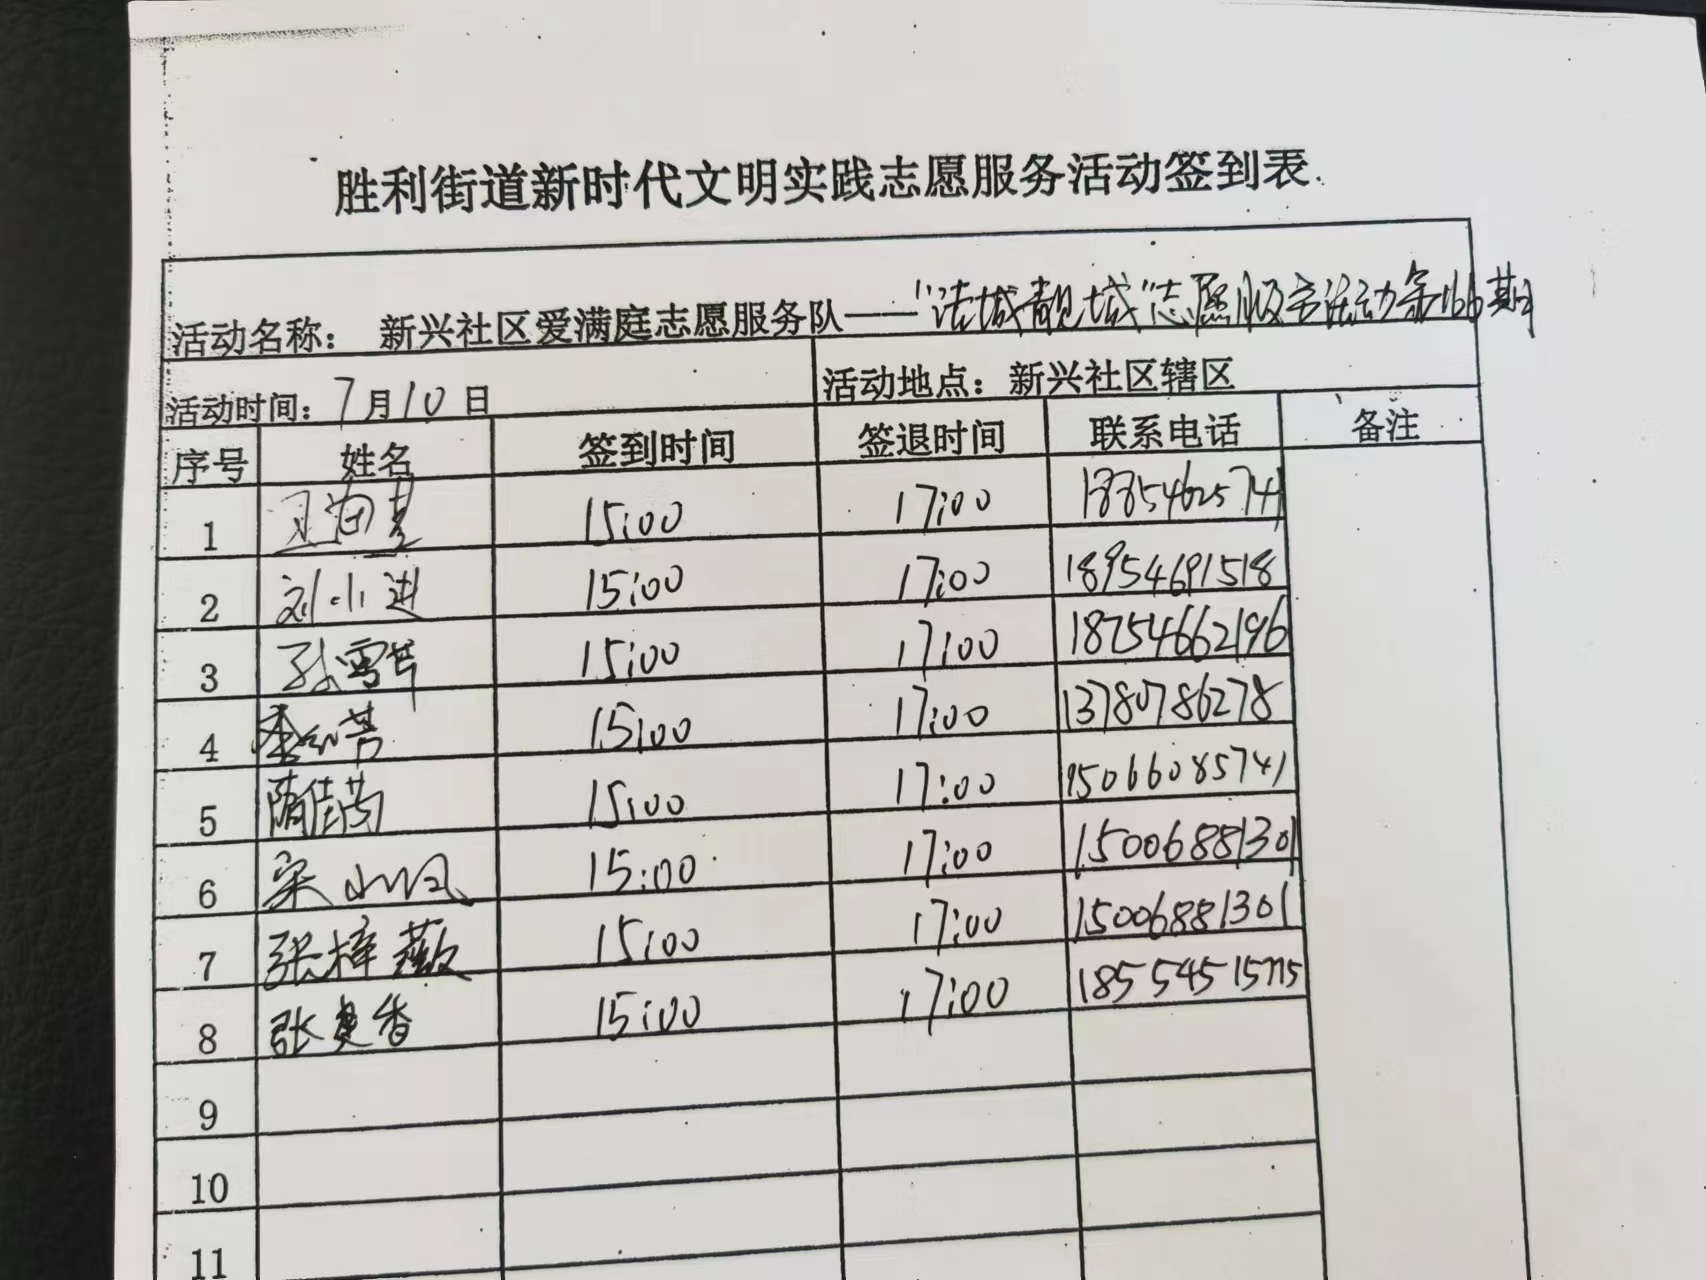 胜利街道新时代文明实践志愿服务活动签到表
活动名称： 新兴社区爱满庭志愿服务队——“洁城靓城”志愿服务活动第166期
活动时间：7月10日 活动地点：新兴社区辖区
序号 姓名 签到时间 签退时间 联系电话 备注
1 15:00 17:00 18854625741
2 刘小进 15:00 17:00 18954691518
3 孙雪芹 15:00 17:00 18754662196
4 15:00 17:00 13780786278
5 隋佳芮 15:00 17:00 15066085741
6 宋小凤 15:00 17:00 15006881301
7 张梓薇 15:00 17:00 15006881301
8 张香 15:00 17:00
9
10
11